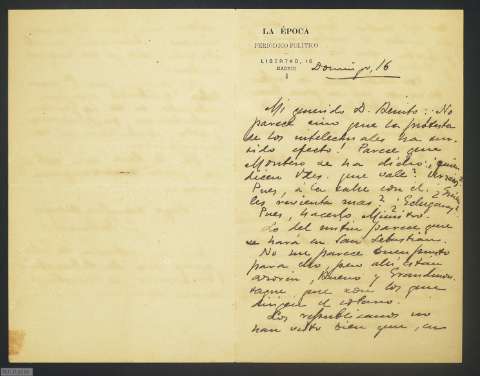 LA ÉPOCA
PERIODICO POLITICO
LIBERTAD, 16
MADRID
Domingo, 16
Mi querido D. Benito: No
parece sino que la protesta
de los intelectuales ha sur-
tido efecto! Parece que
Montero se ha dicho: ¿quien
dicen Vdes. que vale?
Pues, á la calle con él. ¿Quien
les revienta mas? ¿Echegaray?
Pues, hacerlo Ministro.
Lo del mitin parece que
se hará en San Sebastián.
No me parece buen punto
para ello, pero allí están
Azorín, Bueno y Grandmon-
tagne que son los que
dirigen el cotarro.
Los republicanos no
han visto bien que, en